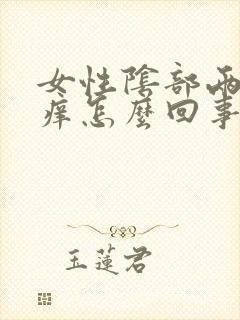 女性陰部兩
癢怎麼回事
玉蓮君